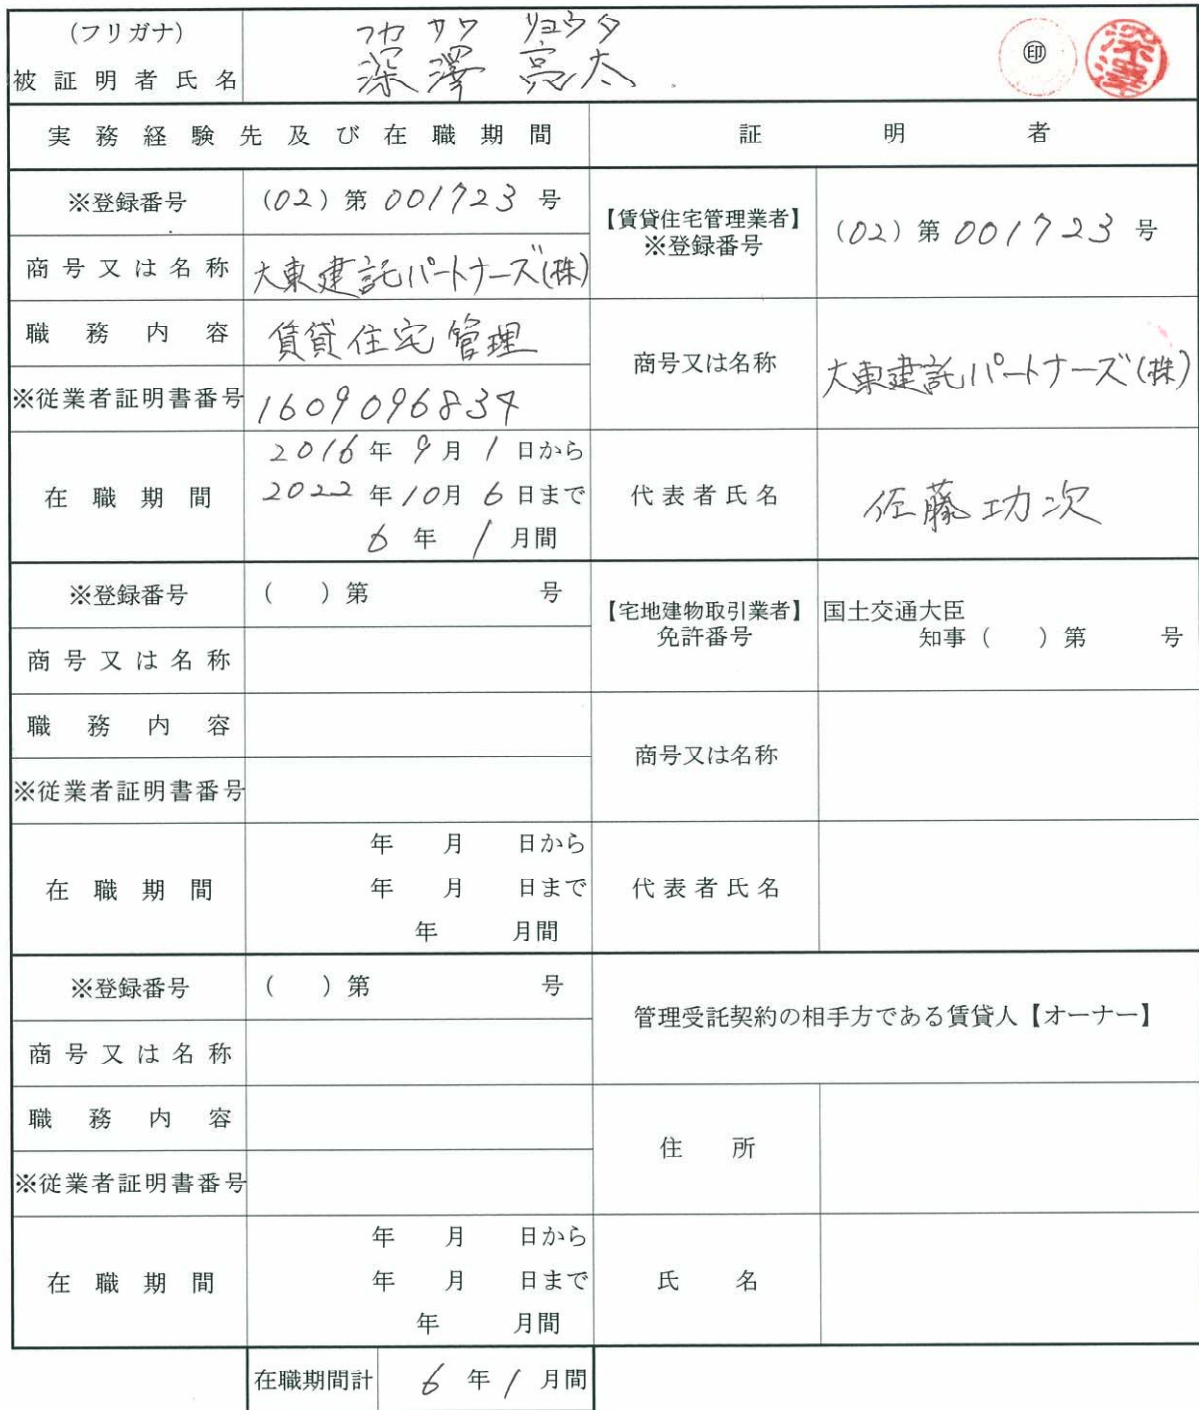 (フリガナ) フカサワ リョウタ
被証明者氏名 深澤 亮太 ㊞ 深澤
実務経験先及び在職期間 証明者
※登録番号 (02)第001723号
【賃貸住宅管理業者】
※登録番号 (02)第001723号
商号又は名称 大東建託パートナーズ(株)
職務内容 賃貸住宅管理
商号又は名称 大東建託パートナーズ(株)
※従業者証明書番号 1609096834
在職期間 2016年9月1日から
2022年10月6日まで
6年1月間
代表者氏名 佐藤功次
※登録番号 ( )第 号
【宅地建物取引業者】
免許番号
国土交通大臣
知事( )第 号
商号又は名称
職務内容
商号又は名称
※従業者証明書番号
在職期間 年 月 日から
年 月 日まで
年 月間
代表者氏名
※登録番号 ( )第 号
管理受託契約の相手方である賃貸人【オーナー】
商号又は名称
職務内容
住所
※従業者証明書番号
在職期間 年 月 日から
年 月 日まで
年 月間
氏名
在職期間計 6年1月間